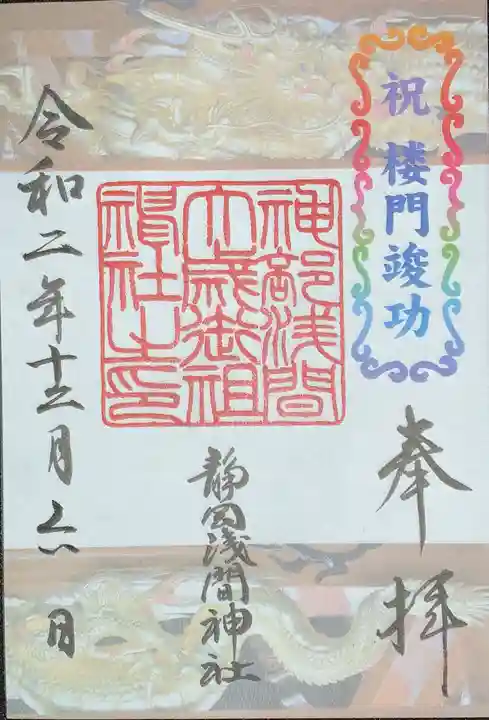 祝 楼門竣功
奉拝
神部浅間
大歳御祖
神社之印
静岡淺間神社
令和二年十二月六日